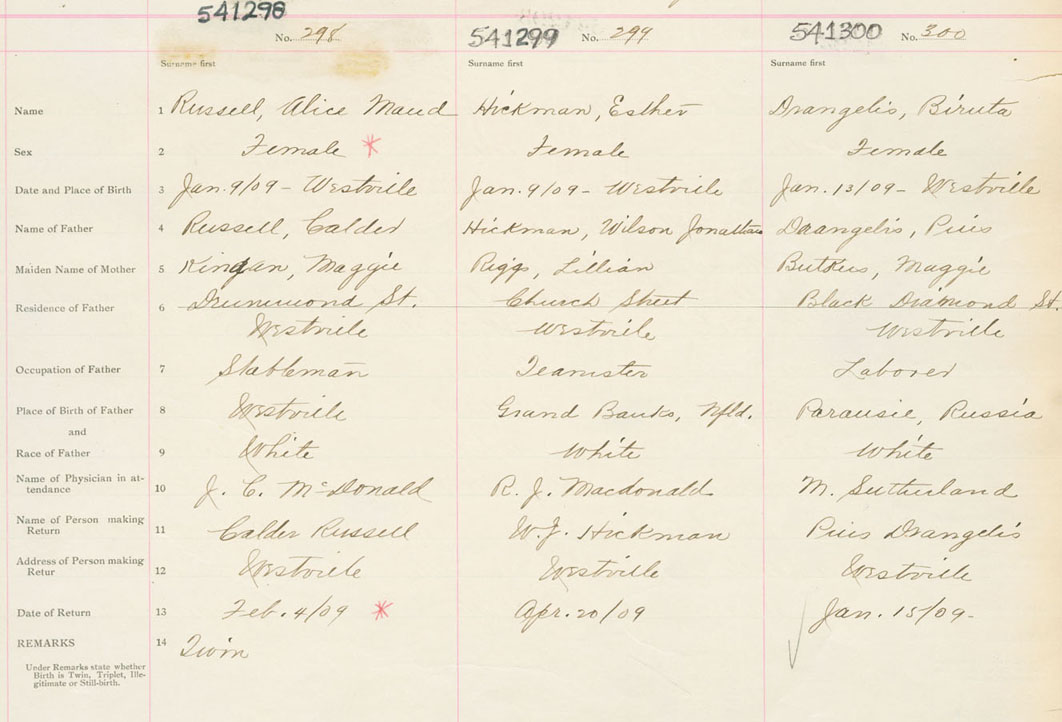 541298 No. 298 541299 No. 299 541300 No. 300
Surname first Surname first Surname first
Name 1 Russell, Alice Maud Hickman, Esther Drangelis, Biruta
Sex 2 Female * Female Female
Date and Place of Birth 3 Jan. 9/09 - Westville Jan. 9/09 - Westville Jan. 13/09 - Westville
Name of Father 4 Russell, Calder Hickman, Wilson Jonathan Drangelis, Pius
Maiden Name of Mother 5 Maggie Riggs, Lillian Butkus, Maggie
Residence of Father 6 Drummond St. Church Street Black Diamond St.
Westville Westville Westville
Occupation of Father 7 Stableman Teamster Laborer
Place of Birth of Father 8 Westville Grand Banks, Nfld. Parausie, Russia
and
Race of Father 9 White White White
Name of Physician in at-
tendance 10 J. C. McDonald R. J. Macdonald M. Sutherland
Name of Person making
Return 11 Calder Russell W. J. Hickman Pius Drangelis
Address of Person making
Retur 12 Westville Westville Westville
Date of Return 13 Feb. 4/09 * Apr. 20/09 Jan. 15/09-
REMARKS 14 Twin
Under Remarks state whether
Birth is Twin, Triplet, Ille-
gitimate or Still-birth.